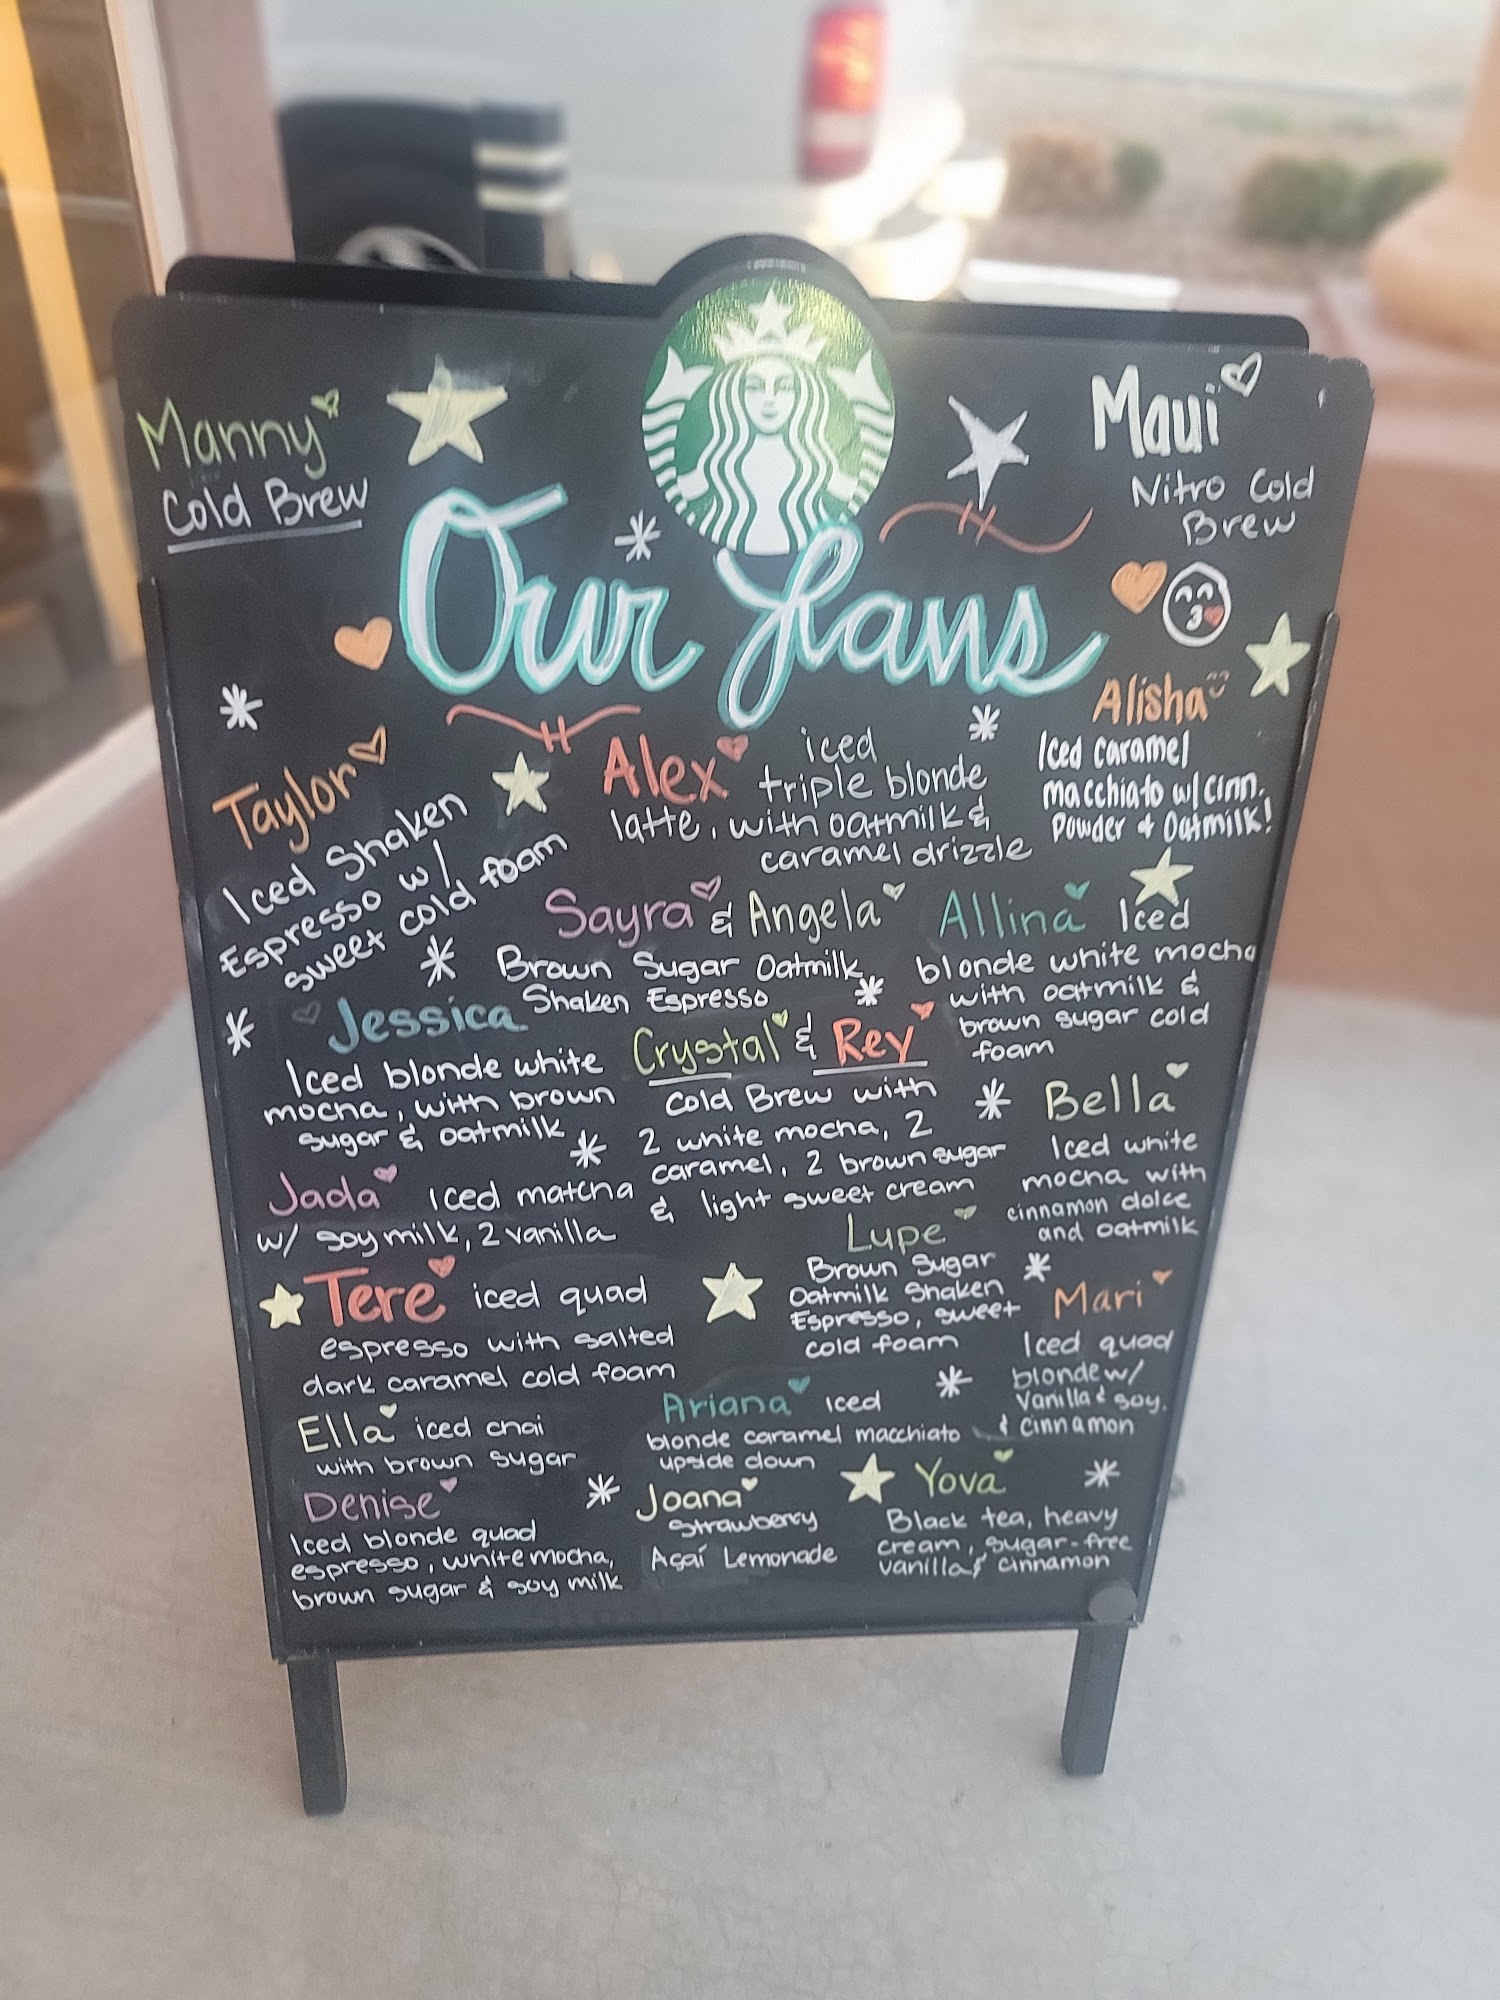 Manny
Cold Brew
Maui
Nitro Cold
Brew
Our Favs
Taylor
Iced Shaken
Espresso w/
sweet cold foam
Alex iced
triple blonde
latte, with oatmilk &
caramel drizzle
Alisha
Iced caramel
macchiato w/ cinn.
Powder & Oatmilk!
Sayra & Angela
Brown Sugar Oatmilk
Shaken Espresso
Allina Iced
blonde white mocha
with oatmilk &
brown sugar cold
foam
Jessica
Iced blonde white
mocha, with brown
sugar & oatmilk
Crystal & Rey
Cold Brew with
2 white mocha, 2
caramel, 2 brown sugar
& light sweet cream
Bella
Iced white
mocha with
cinnamon dolce
and oatmilk
Jada iced matcha
w/ soymilk, 2 vanilla
Lupe
Brown Sugar
Oatmilk Shaken
Espresso, sweet
cold foam
Tere iced quad
espresso with salted
dark caramel cold foam
Mari
Iced quad
blonde w/
Vanilla & soy.
& cinnamon
Ella iced chai
with brown sugar
Ariana iced
blonde caramel macchiato
upside down
Denise
Iced blonde quad
espresso, white mocha,
brown sugar & soy milk
Joana
Strawberry
Açaí Lemonade
Yova
Black tea, heavy
cream, sugar-free
vanilla & cinnamon